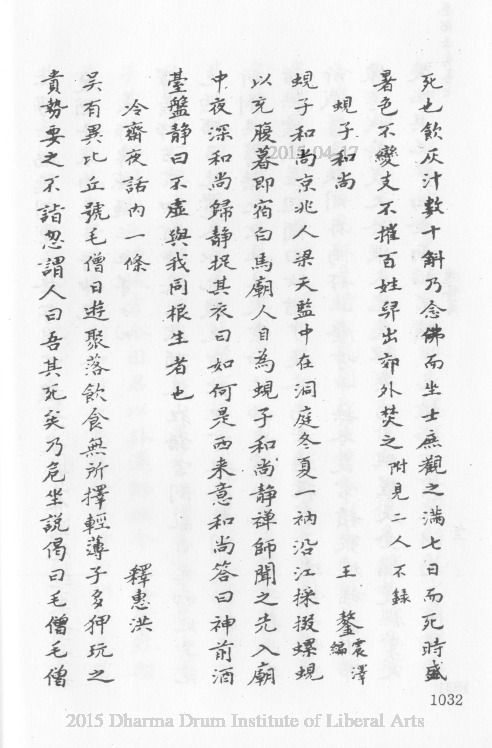 死也飲灰汁數十斛乃念佛而坐士庶觀之滿七日而死時盛
暑色不變支不摧百姓舁出郊外焚之 附見二人不錄
蜆子和尚 王鏊 震澤編
蜆子和尚京兆人梁天監中在洞庭冬夏一衲沿江採掇螺蜆
以充腹暮即宿白馬廟人目為蜆子和尚静禅師聞之先入廟
中夜深和尚歸静捉其衣曰如何是西来意和尚答曰神前酒
臺盤静曰不虛與我同根生者也
冷齋夜話內一條 釋惠洪
吴有異比丘號毛僧日遊聚落飲食無所擇輕薄子多狎玩之
貴勢要之不詣忽謂人曰吾其死矣乃危坐說偈曰毛僧毛僧
1032
2015-04-17
2015 Dharma Drum Institute of Liberal Arts